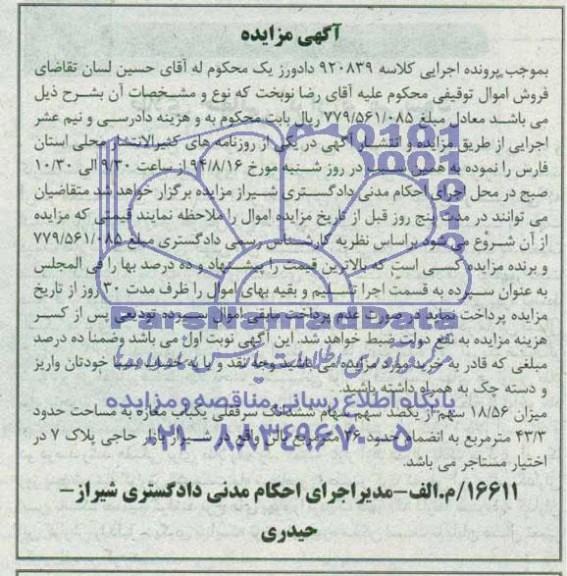 آگهی مزایده
بموجب پرونده اجرایی کلاسه ۹۲۰۸۳۹ دادورز یک محکوم له آقای حسین لسان تقاضای
فروش اموال توقیفی محکوم علیه آقای رضا نوبخت که نوع و مشخصات آن بشرح ذیل
می باشد معادل مبلغ ۷۷۹/۵۶۱/۰۸۵ ریال بابت محکوم به و هزینه دادرسی و نیم عشر
اجرایی از طریق مزایده و انتشار آگهی در یکی از روزنامه های کثیرالانتشار محلی استان
فارس را نموده به همین در روز شنبه مورخ ۹۴/۸/۱۶ از ساعت ۹/۳۰ الی ۱۰/۳۰
صبح در محل اجرای احکام مدنی دادگستری شیراز مزایده برگزار خواهد شد متقاضیان
می توانند در مدت پنج روز قبل از تاریخ مزایده اموال را ملاحظه نمایند قیمتی که مزایده
از آن شروع می شود براساس نظریه کارشناس رسمی دادگستری مبلغ ۷۷۹/۵۶۱/۰۸۵
و برنده مزایده کسی است که بالاترین قیمت را پیشنهاد و ده درصد بها را فی المجلس
به عنوان سپرده به قسمت اجرا تسلیم و بقیه بهای اموال را ظرف مدت ۳۰ روز از تاریخ
مزایده پرداخت نماید در صورت عدم پرداخت مابقی اموال سپرده تودیعی پس از کسر
هزینه مزایده به نفع دولت ضبط خواهد شد. این آگهی نوبت اول می باشد وضمنا ده درصد
مبلغی که قادر به خرید مورد مزایده می باشید وجه نقد و یا به حساب سیبا خودتان واریز
و دسته چک به همراه داشته باشید.
میزان ۱۸/۵۶ سهم از یکصد سهم سهام ششدانگ سرقفلی یکباب مغازه به مساحت حدود
۴۳/۳ مترمربع به انضمام حدود ۳۶ مترمربع بالن واقع در شیراز بازار حاجی پلاک ۷ در
اختیار مستاجر می باشد.
۱۶۶۱۱/م.الف-مدیراجرای احکام مدنی دادگستری شیراز-
حیدری
ParsNamadData
پایگاه اطلاع رسانی مناقصه و مزایده
۰۲۱-۸۸۳۴۹۶۷۰-۵